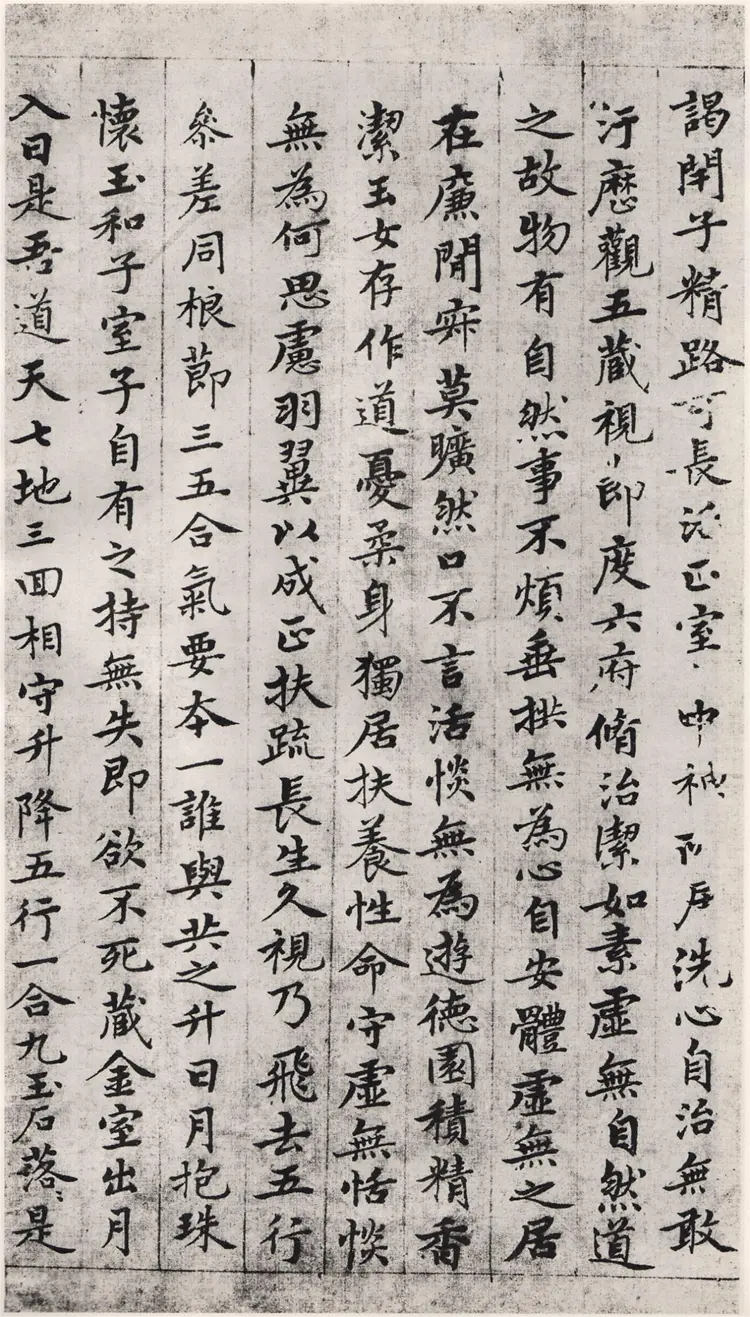 謁閇子精路可長活正室中神所居洗心自治無敢
汙歷觀五藏視節度六府脩治潔如素虛無自然道
之故物有自然事不煩垂拱無為心自安體虛無之居
在廉間寂莫曠然口不言恬惔無為遊德園積精香
潔玉女存作道憂柔身獨居扶養性命守虛無恬惔
無為何思慮羽翼以成正扶疏長生久視乃飛去五行
參差同根莭三五合氣要本一誰與共之升日月抱珠
懷玉和子室子自有之持無失即欲不死藏金室出月
入日是吾道天七地三回相守升降五行一合九玉石落〻是